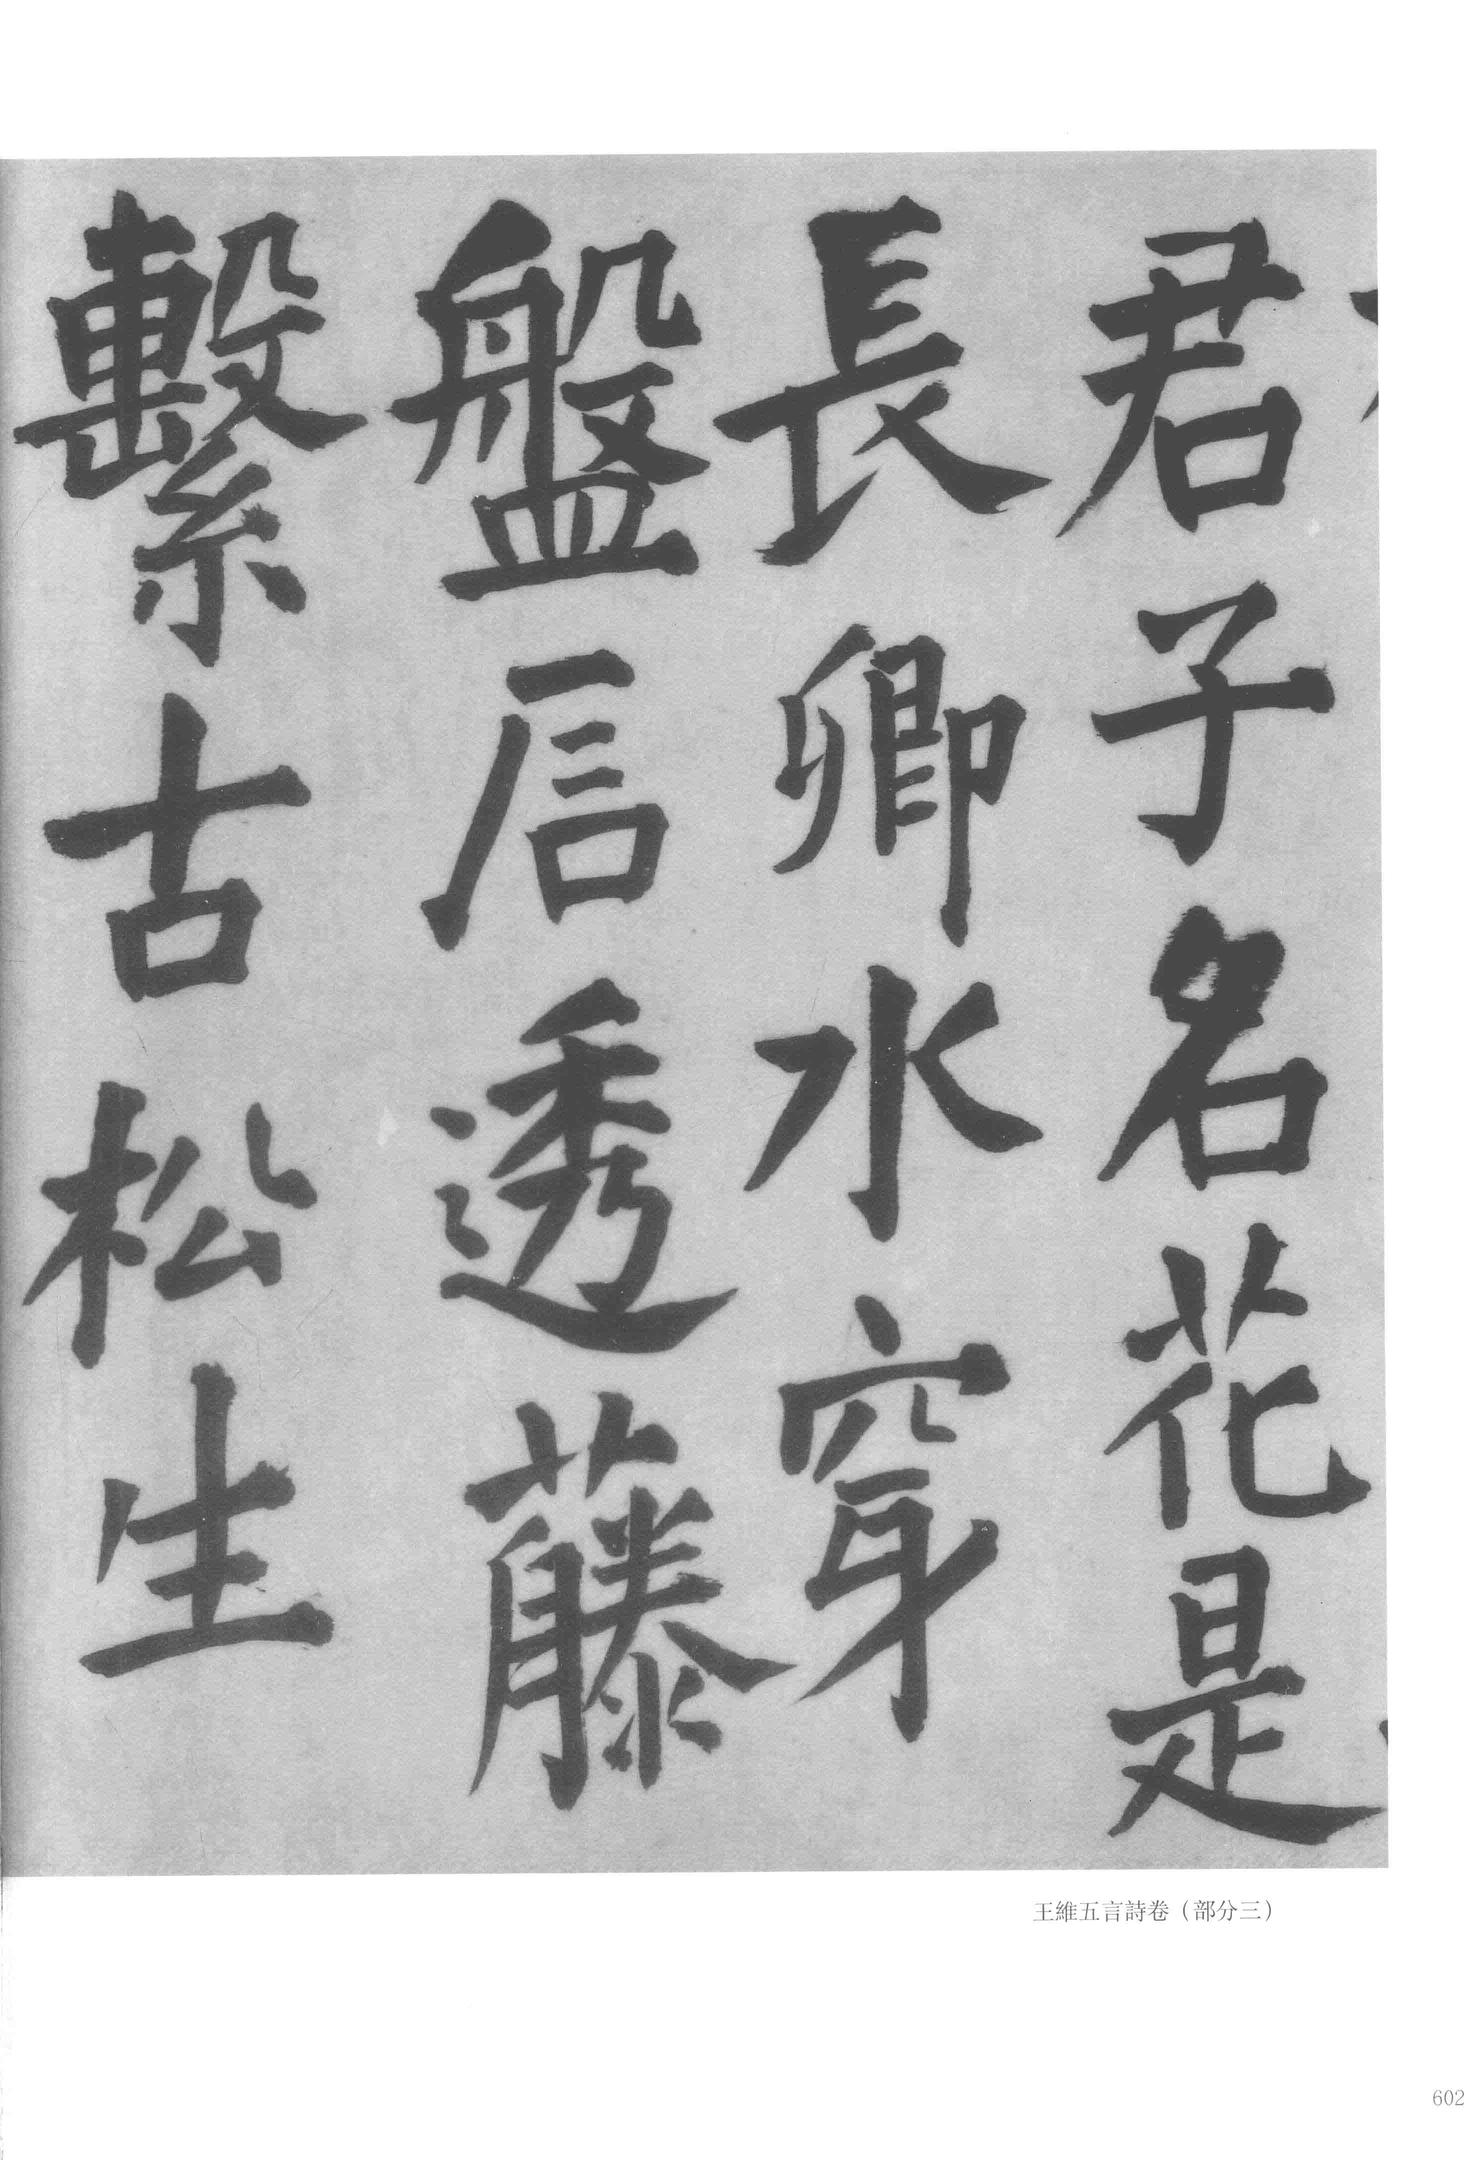 君子名花是
長卿水穿
盤石透藤
繫古松生
王維五言詩卷（部分三）
602